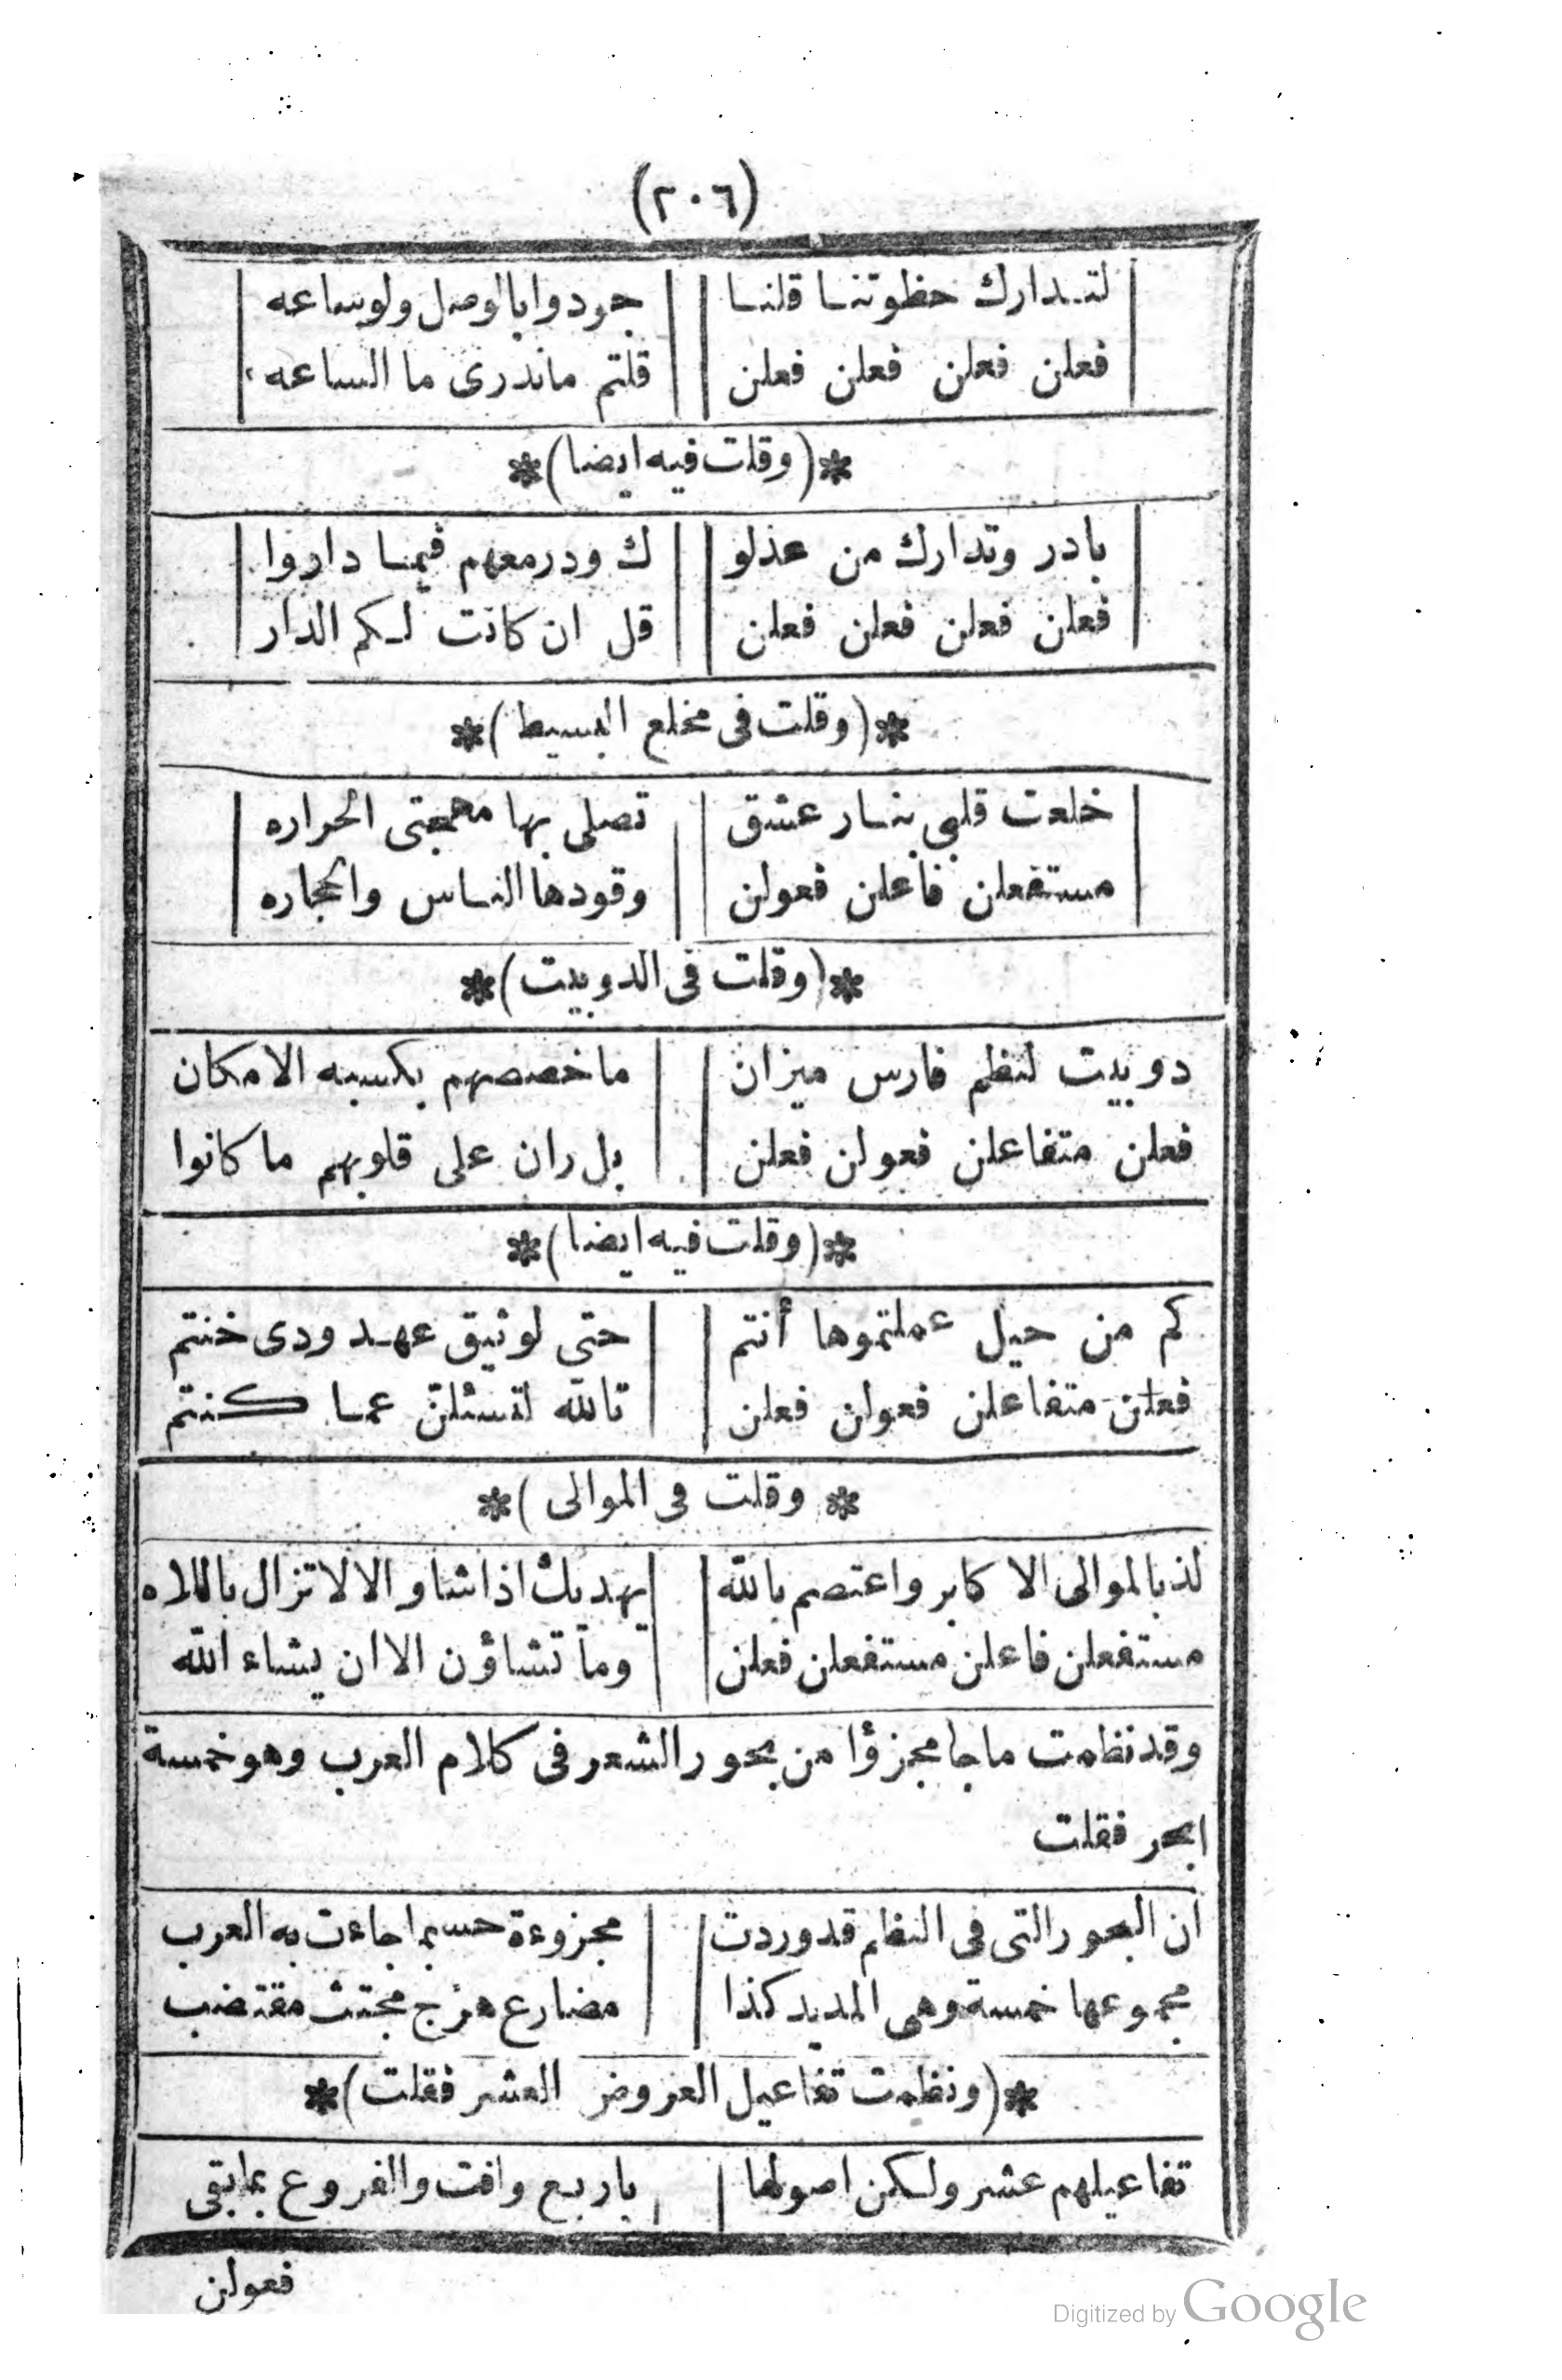 (٢٠٦)
لتدارك حظوتنا قلنا | جودوا بالوصل ولو بساعه
فعلن فعلن فعلن فعلن | قلتم ماندرى ما الساعه
*(وقلت فيه ايضا)*
بادر وتدارك من عذلو | ك ودر معهم فيما داروا
فعلن فعلن فعلن فعلن | قل ان كانت لكم الدار
*(وقلت فى مخلع البسيط)*
خلعت قلبى بنار عشق | تصلى بها مهجتى الحراره
مستفعلن فاعلن فعولن | وقودها الناس والحجاره
*(وقلت فى الدوبيت)*
دوبيت لنظم فارس ميزان | ما خصصهم بكسبه الامكان
فعلن متفاعلن فعولن فعلن | بل ران على قلوبهم ما كانوا
*(وقلت فيه ايضا)*
كم من حيل عملتموها أنتم | حتى لوثيق عهد ودى خنتم
فعلن متفاعلن فعولن فعلن | تالله لتسئلن عما كنتم
* وقلت فى الموالى)*
لذ بالموالى الاكابر واعتصم بالله | يهديك اذا شاو الا لا تزال باللاه
مستفعلن فاعلن مستفعلن فعلن | وما تشاؤن الا ان يشاء الله
وقد نظمت ماجا مجزؤا من بحور الشعر فى كلام العرب وهو خمسة
ابحر فقلت
ان البحور التى فى النظم قد وردت | مجزوءة حسبما جاءت به العرب
مجموعها خمسة وهى المديد كذا | مضارع هزج مجتث مقتضب
*(ونظمت تفاعيل العروض العشر فقلت)*
تفاعيلهم عشر ولكن اصولها | باربع وافت والفروع بما بقى
فعولن
Digitized by Google